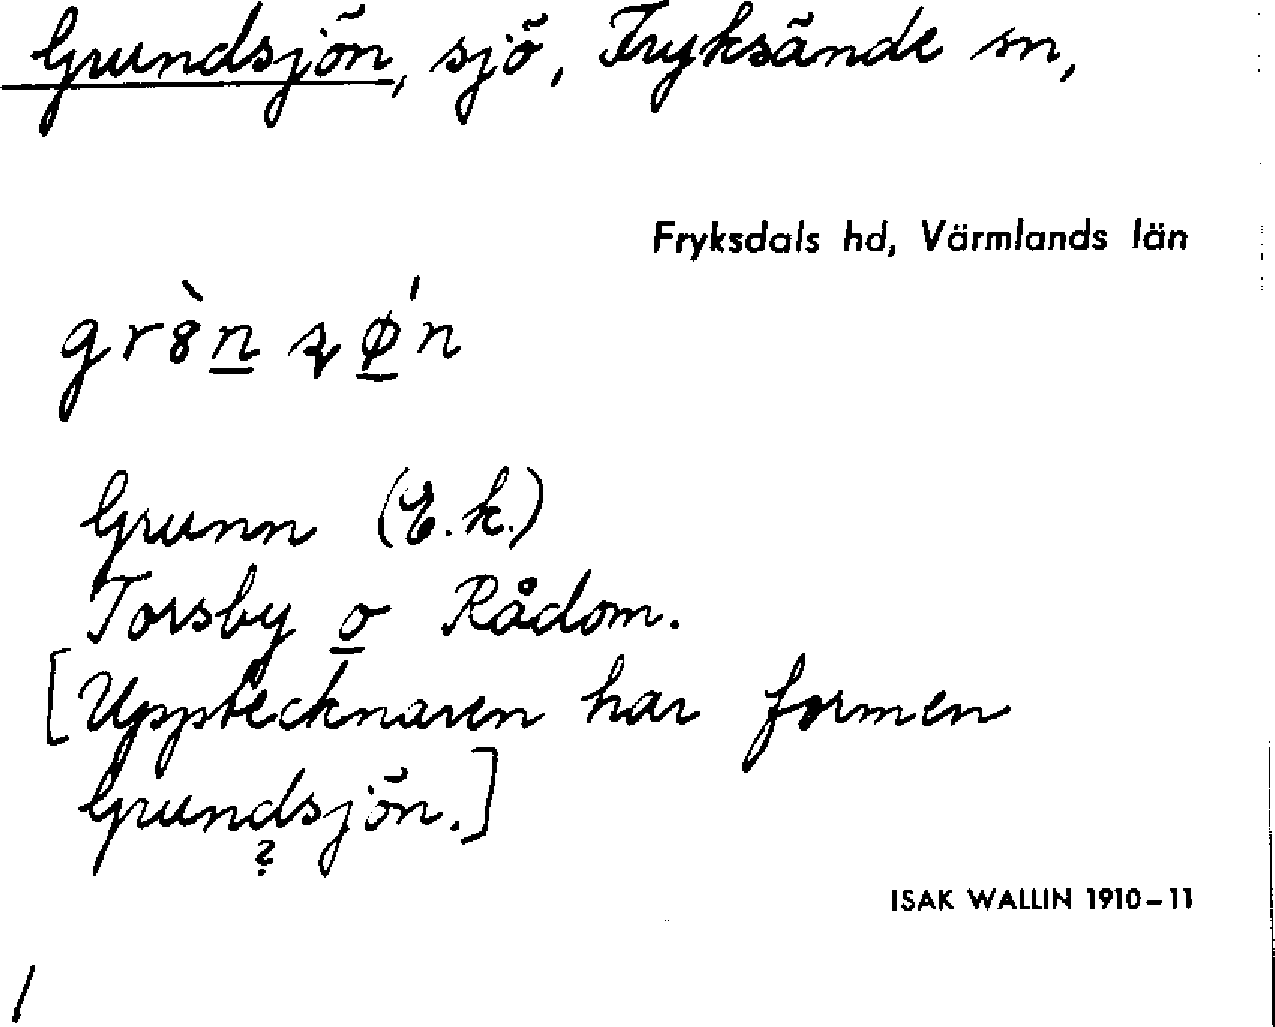 Grundsjön, sjö, Fryksände sn,
Fryksdals hd, Värmlands län
grȣ̀n ʂǿ̲n
Grunn (E.k.)
Torsby o Rådom.
[Upptecknaren har formen
Grundsjön.]
?
ISAK WALLIN 1910-11
/